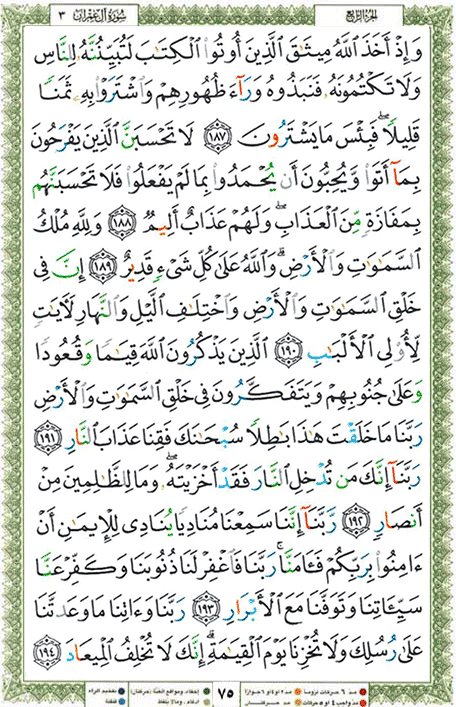 سُورَةُ آلِ عِمْرَان ٣
الجزء الرابع
وَإِذْ أَخَذَ ٱللَّهُ مِيثَٰقَ ٱلَّذِينَ أُوتُوا۟ ٱلْكِتَٰبَ لَتُبَيِّنُنَّهُۥ لِلنَّاسِ
وَلَا تَكْتُمُونَهُۥ فَنَبَذُوهُ وَرَآءَ ظُهُورِهِمْ وَٱشْتَرَوْا۟ بِهِۦ ثَمَنًا
قَلِيلًا ۖ فَبِئْسَ مَا يَشْتَرُونَ ١٨٧ لَا تَحْسَبَنَّ ٱلَّذِينَ يَفْرَحُونَ
بِمَآ أَتَوا۟ وَّيُحِبُّونَ أَن يُحْمَدُوا۟ بِمَا لَمْ يَفْعَلُوا۟ فَلَا تَحْسَبَنَّهُم
بِمَفَازَةٍ مِّنَ ٱلْعَذَابِ ۖ وَلَهُمْ عَذَابٌ أَلِيمٌ ١٨٨ وَلِلَّهِ مُلْكُ
ٱلسَّمَٰوَٰتِ وَٱلْأَرْضِ ۗ وَٱللَّهُ عَلَىٰ كُلِّ شَىْءٍ قَدِيرٌ ١٨٩ إِنَّ فِى
خَلْقِ ٱلسَّمَٰوَٰتِ وَٱلْأَرْضِ وَٱخْتِلَٰفِ ٱلَّيْلِ وَٱلنَّهَارِ لَءَايَٰتٍ
لِّأُو۟لِى ٱلْأَلْبَٰبِ ١٩٠ ٱلَّذِينَ يَذْكُرُونَ ٱللَّهَ قِيَٰمًا وَقُعُودًا
وَعَلَىٰ جُنُوبِهِمْ وَيَتَفَكَّرُونَ فِى خَلْقِ ٱلسَّمَٰوَٰتِ وَٱلْأَرْضِ
رَبَّنَا مَا خَلَقْتَ هَٰذَا بَٰطِلًا سُبْحَٰنَكَ فَقِنَا عَذَابَ ٱلنَّارِ ١٩١
رَبَّنَآ إِنَّكَ مَن تُدْخِلِ ٱلنَّارَ فَقَدْ أَخْزَيْتَهُۥ ۖ وَمَا لِلظَّٰلِمِينَ مِنْ
أَنصَارٍ ١٩٢ رَّبَّنَآ إِنَّنَا سَمِعْنَا مُنَادِيًا يُنَادِى لِلْإِيمَٰنِ أَنْ
ءَامِنُوا۟ بِرَبِّكُمْ فَـَٔامَنَّا ۚ رَبَّنَا فَٱغْفِرْ لَنَا ذُنُوبَنَا وَكَفِّرْ عَنَّا
سَيِّـَٔاتِنَا وَتَوَفَّنَا مَعَ ٱلْأَبْرَارِ ١٩٣ رَبَّنَا وَءَاتِنَا مَا وَعَدتَّنَا
عَلَىٰ رُسُلِكَ وَلَا تُخْزِنَا يَوْمَ ٱلْقِيَٰمَةِ ۗ إِنَّكَ لَا تُخْلِفُ ٱلْمِيعَادَ ١٩٤
مد ٦ حركات لزوماً مد ٢ او ٤ او ٦ جوازاً
مد واجب ٤ او ٥ حركات مد حركتان
٧٥
إخفاء، ومواقع الغنة (حركتان) تفخيم الراء
ادغام، ومالا يلفظ قلقلة